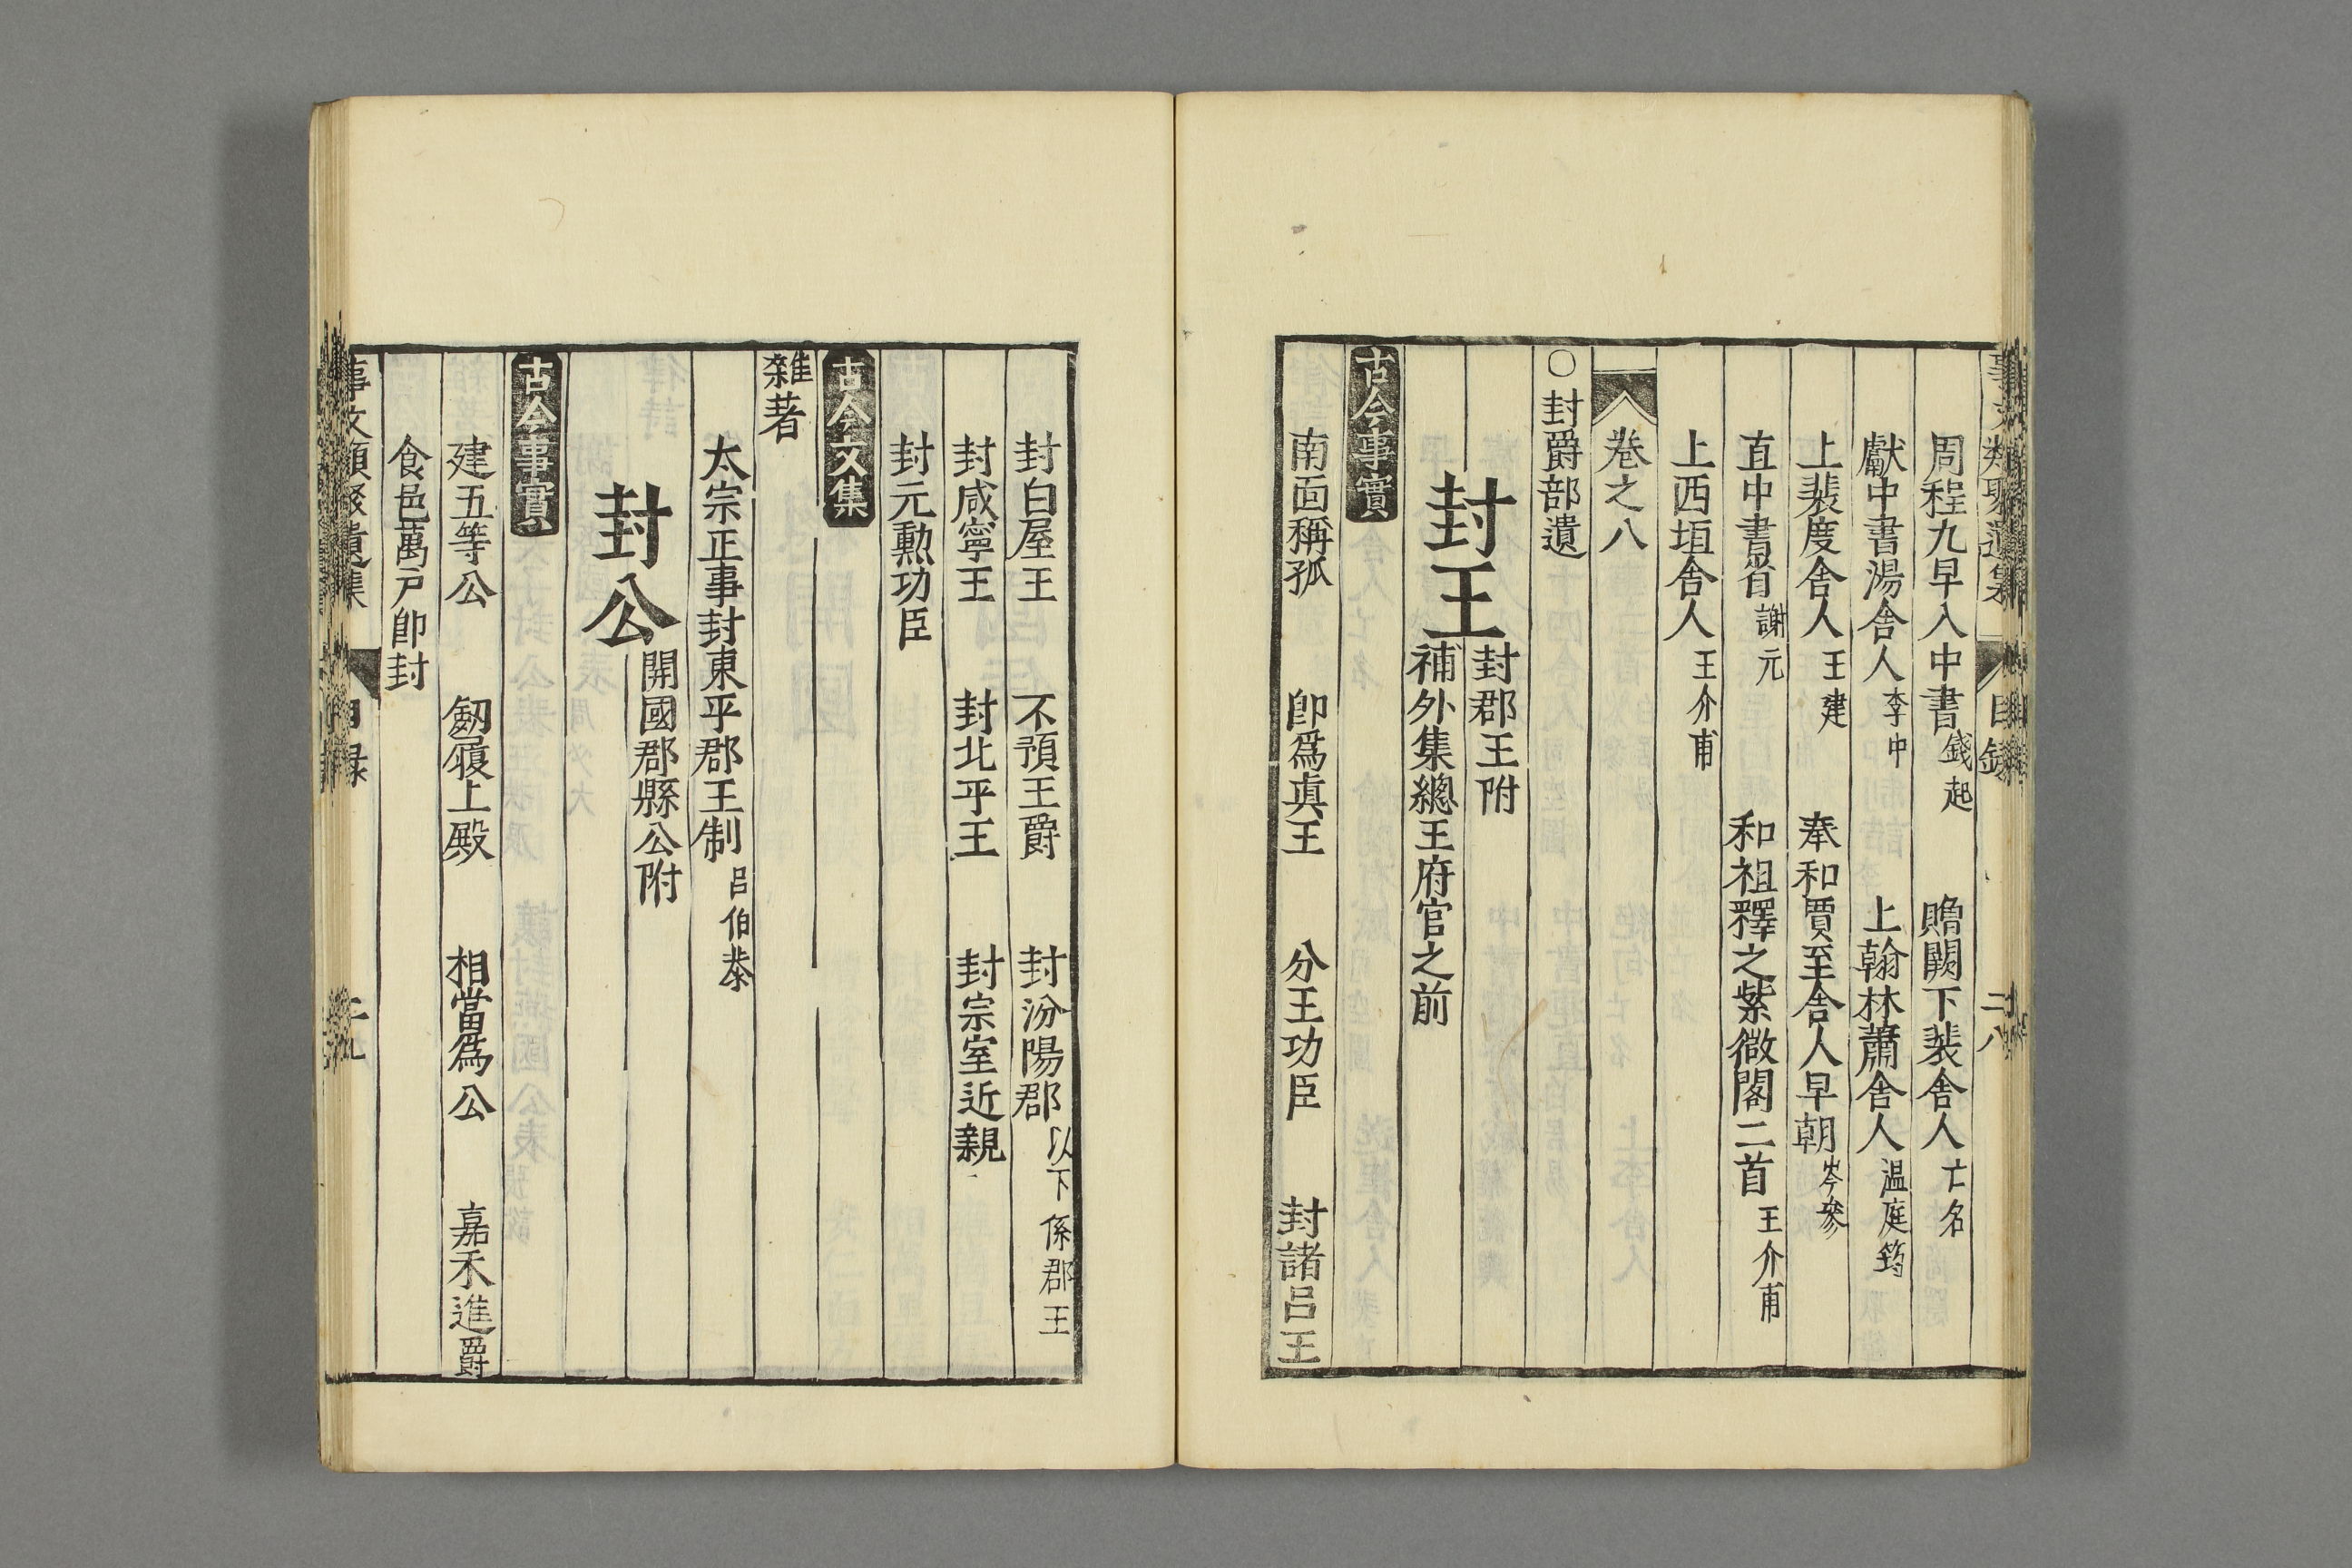 事文類聚遺集 目録 二八
周程九早入中書 錢起 贈闕下裴舍人 亡名
獻中書湯舍人 李中 上翰林蕭舍人 温庭筠
上裴度舍人 王建 奉和賈至舍人早朝 岑參
直中書省 謝元 和祖釋之紫微閣二首 王介甫
上西垣舍人 王介甫
卷之八
〇封爵部遺
封王 封郡王附
補外集總王府官之前
古今事實
南面稱孤 卽爲眞王 分王功臣 封諸呂王
封白屋王 不預王爵 封汾陽郡 以下係郡王
封咸寧王 封北平王 封宗室近親
封元勲功臣
古今文集
雜著
太宗正事封東平郡王制 呂伯恭
封公 開國郡縣公附
古今事實
建五等公 劒履上殿 相當爲公 嘉禾進爵
食邑萬戸卽封
事文類聚遺集 目録 二九